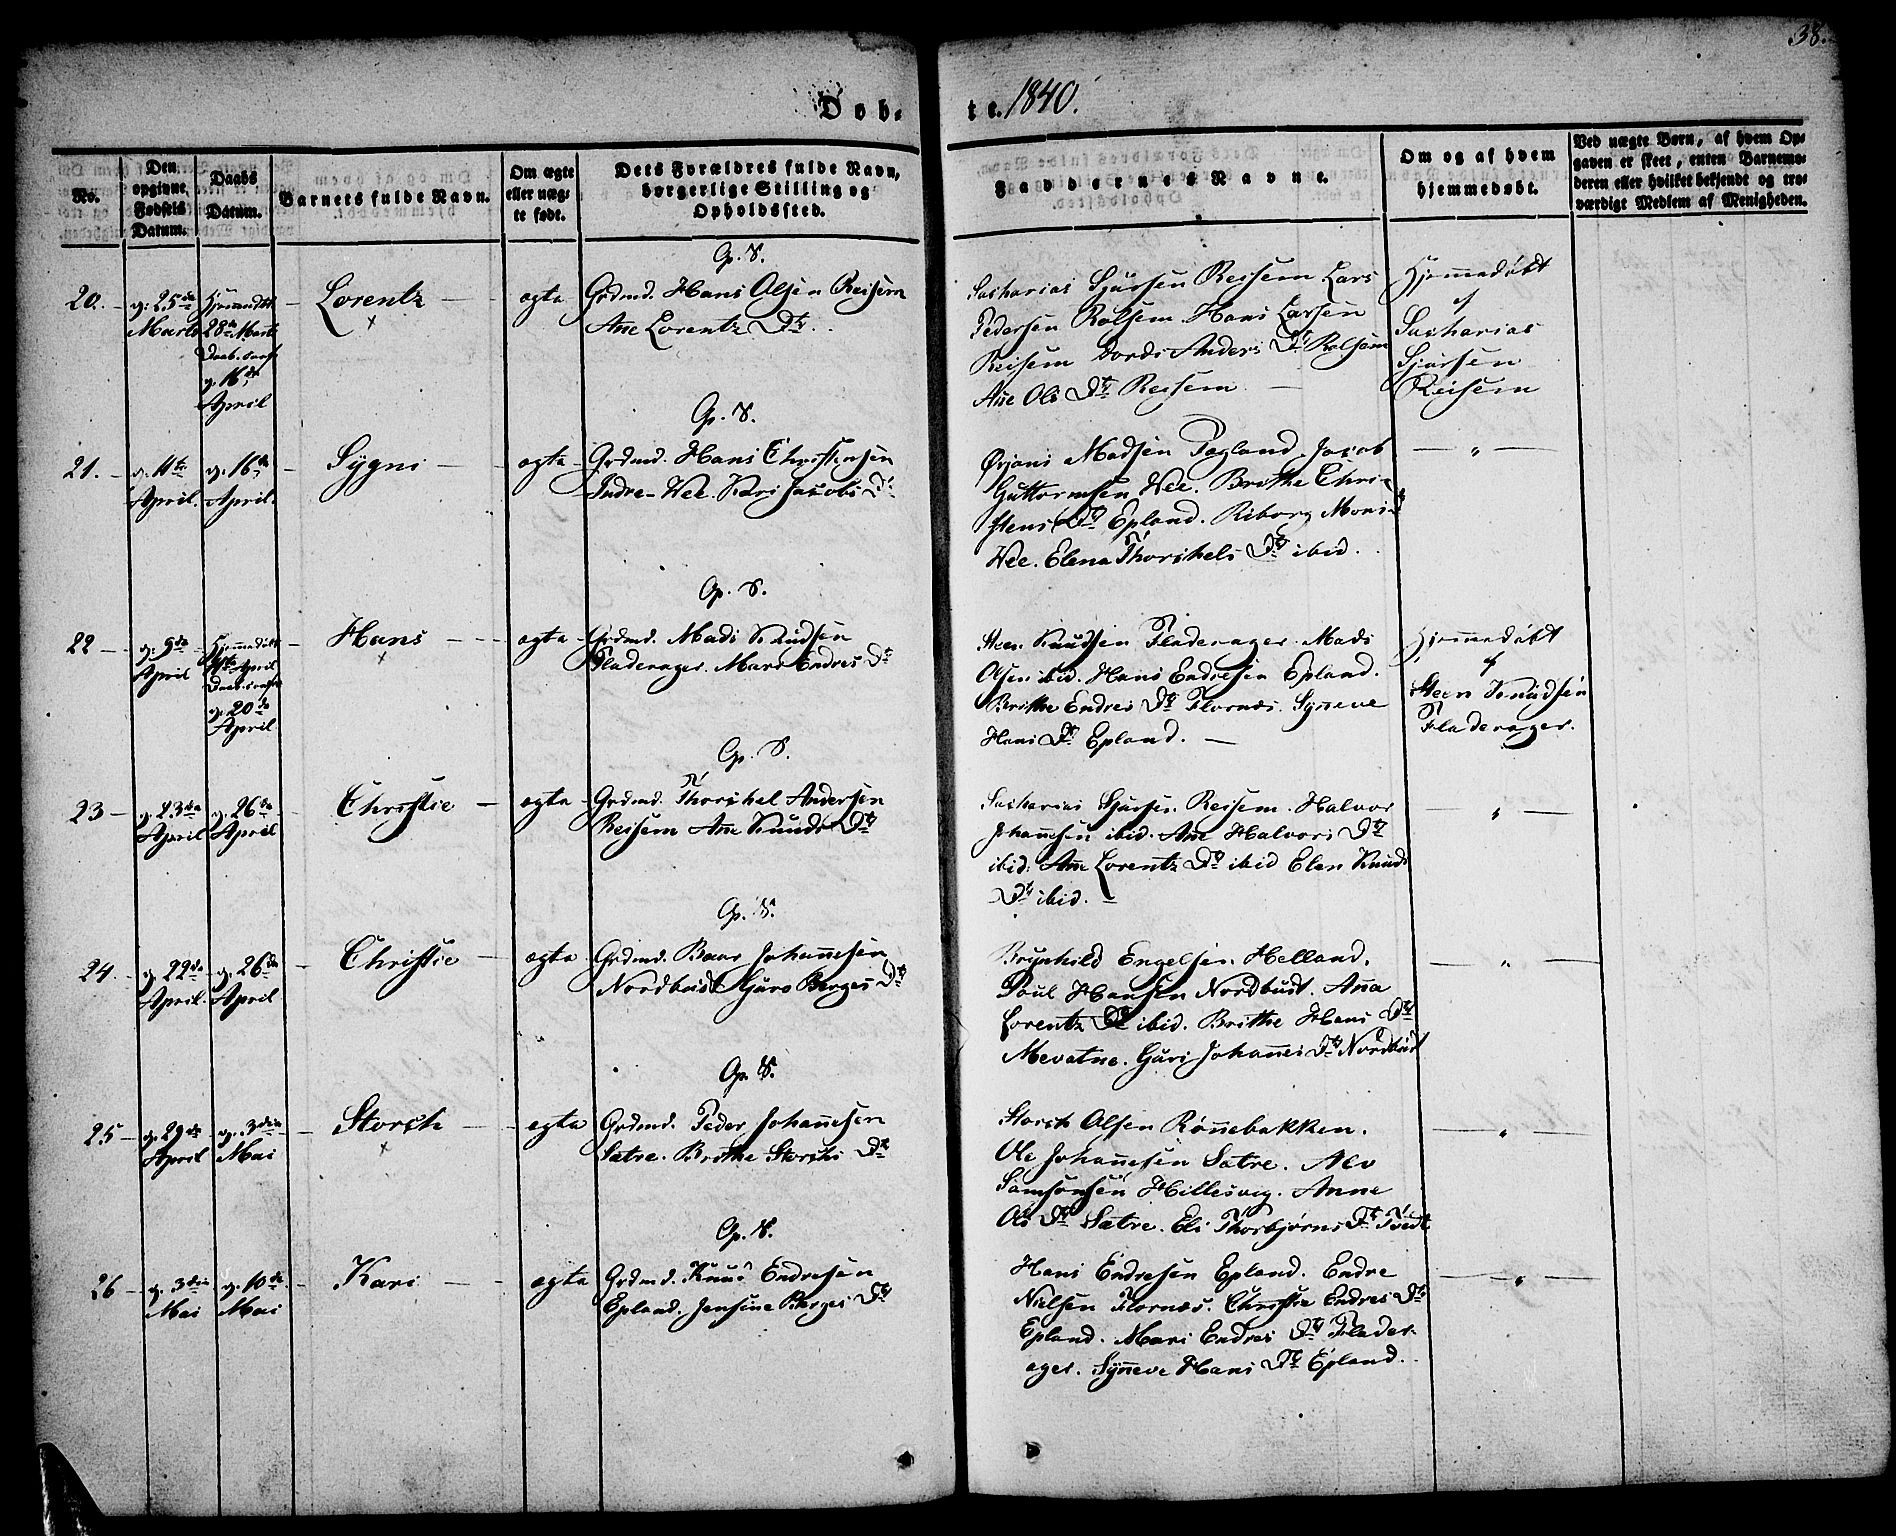 38.
Døb-
te. 1840.
No.
Den opgivne Fødsels Datum.
Daabs Datum.
Barnets fulde Navn.
Om ægte eller uæg-
te født.
Dets Forældres fulde Navn,
borgerlige Stilling og
Opholdssted.
Faddernes Navne.
Om og af hvem
hjemmedøbt.
Ved uægte Børn, af hvem Op-
gaven er skeet, enten Barnemo-
deren eller hvilket bekjendt og tro-
værdigt Medlem af Menigheden.
20.
25de
Marts
Hjemmedøbt
28de Marts
16de
April
Lorentz
ægte
Grdmd. Hans Olsen Reisem
Ane Lorentz Dtr.
Sacharias Sjursen Reisem Lars
Pedersen Rolsem Hans Larsen
Reisem Anders Dtr Rolsem
Ane Ols Dtr Reisem
Hjemmedøbt
af
Sacharias
Sjursen
Reisem
21.
April.
16de
April.
Sygni
ægte
Grdmd. Hans Christensen
Indre-Vee. Kari Jacobs Dtr
Ørjans Madsen Tagland Jacob
Guttormsen Vee. Brithe Chri-
stens Dtr Epland. Riborg Mons Dtr
Vee. Elena Thorchels Dtr ibid.
22
9de
April
Hjemmedøbt
April
20de
April
Hans
ægte
Grdmd. Mads Knudsen
Fladerager. Mari Endres Dtr
Steen Knudsen Fladerager. Mads
Olsen ibid. Hans Endresen Epland.
Brithe Endres Dtr Flornæs. Syneve
Hans Dtr Epland.
Hjemmedøbt
af
Steen Knudsen
Fladerager.
23
23de
April
26de
April
Christie
ægte
Grdmd. Thorchel Andersen
Reisem Ane Knuds Dtr
Sacharias Sjursen Reisem. Halvor
Johannesen ibid. Ane Halvors Dtr
ibid. Ane Lorentz Dtr ibid Elen Knuds
Dtr ibid.
24.
22de
April.
26de
April
Christie
ægte
Grdmd. Baar Johannesen
Nordbust Guro Børges Dtr
Brynhild Engelsen Helland.
Poul Hansen Nordbust. Anna
Lorentz Dtr ibid. Brithe Hans Dtr
Mevatne. Guri Johannes Dtr Nordbust
25
29de
April
3die
Mai
Storch
ægte
Grdmd. Peder Johannesen
Sætre. Brithe Storchs Dtr
Storch Olsen Rønnebakken.
Ole Johannesen Sætre. Alv
Samsonsen Hillesvig. Anne
Ols Dtr Sætre. Eli Thorbjørns Dtr Tvedt
26
3die
Mai
10de
Mai
Kari
ægte
Grdmd. Knud Endresen
Epland. Jensine Børges Dtr
Hans Endresen Epland. Endre
Nielsen Flornæs. Christie Endres Dtr
Epland. Mari Endres Dtr Flader-
ager. Syneve Hans Dtr Epland.